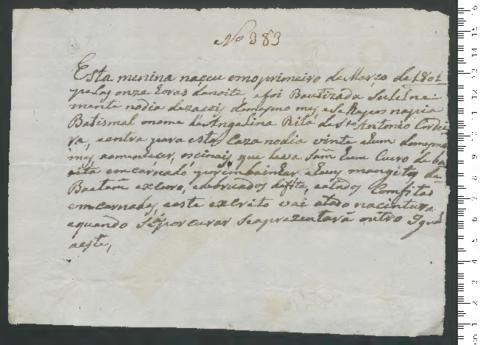 No 383
Esta menina naceu em oprimeiro de Março de 1801
pelas onze Eoras danoite, e foi Bautizada Solelne
mente nodia dezaceis, domesmo mes, e se lhe pos napia
Batismal onome de Angelina Rita de Sto Antonio Cordei
ra, eentra para esta Caza nodia vinte eum domesmo
mes, aomanhecer, os cinais que leva Sam Eum Cueiro de ba
eita emcarnado por imbainhar Eum, mangitos de
Baetam escuro, atados Com fitas
emcarnadas, eeste escrito vai atado nacintura
equando Se procurar Seaprezentará outro Igual
aeste,